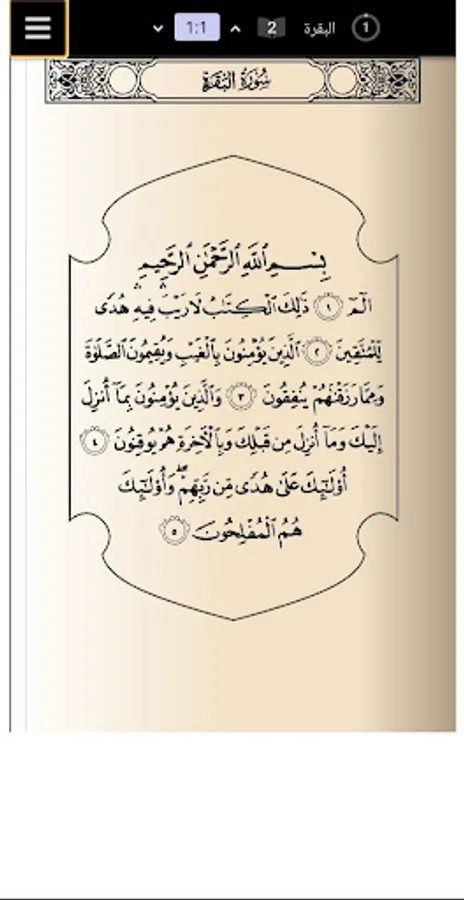 1 البقرة 2 1:1
سُورَةُ البَقَرَةِ
بِسْمِ ٱللَّهِ ٱلرَّحْمَٰنِ ٱلرَّحِيمِ
الٓمٓ ١ ذَٰلِكَ ٱلْكِتَٰبُ لَا رَيْبَ فِيهِ هُدًى
لِّلْمُتَّقِينَ ٢ ٱلَّذِينَ يُؤْمِنُونَ بِٱلْغَيْبِ وَيُقِيمُونَ ٱلصَّلَوٰةَ
وَمِمَّا رَزَقْنَٰهُمْ يُنفِقُونَ ٣ وَٱلَّذِينَ يُؤْمِنُونَ بِمَآ أُنزِلَ
إِلَيْكَ وَمَآ أُنزِلَ مِن قَبْلِكَ وَبِٱلْءَاخِرَةِ هُمْ يُوقِنُونَ ٤
أُو۟لَٰٓئِكَ عَلَىٰ هُدًى مِّن رَّبِّهِمْ ۖ وَأُو۟لَٰٓئِكَ
هُمُ ٱلْمُفْلِحُونَ ٥